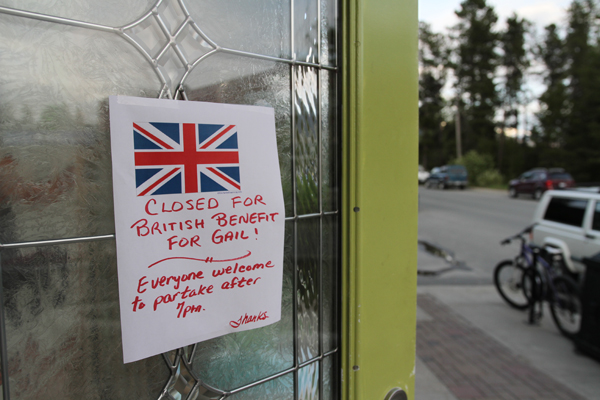 CLOSED FOR
BRITISH BENEFIT
FOR GAIL!
Everyone welcome
to partake after
7pm.
Thanks.